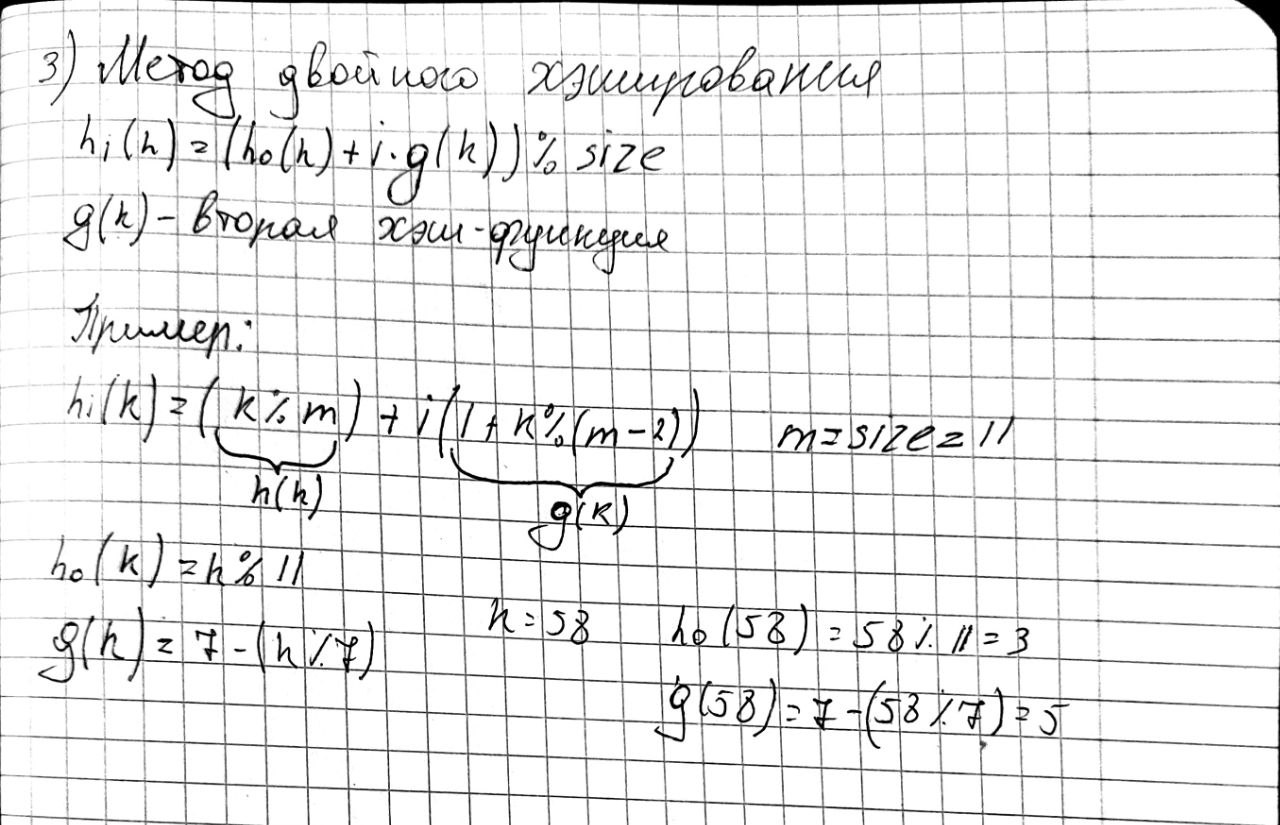 3) Метод двойного хэширования
hᵢ(k) = (h₀(k) + i·g(k)) % size
g(k) - вторая хэш-функция
Пример:
hᵢ(k) = (k % m) + i(1 + k % (m - 2)) m = size = 11
h(k) g(k)
h₀(k) = k % 11
g(k) = 7 - (k % 7) k = 58 h₀(58) = 58 % 11 = 3
g(58) = 7 - (58 % 7) = 5